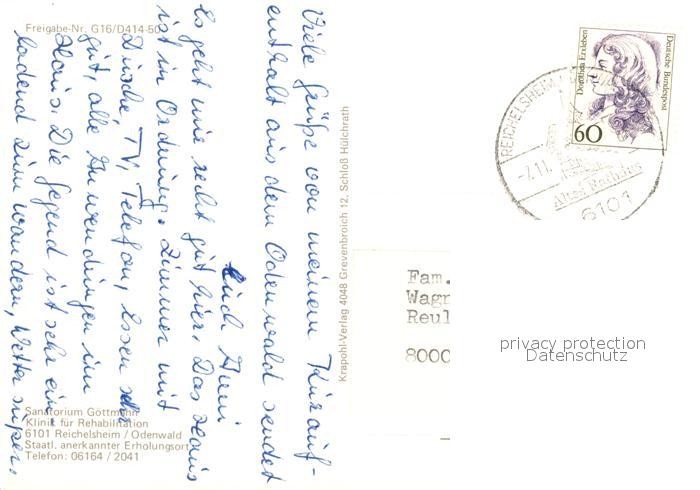 Freigabe-Nr. G16/D414-50
Viele Grüße von meinem Kurauf-
enthalt aus dem Odenwald sendet
Euch Anni
Es geht mir recht gut hier. Das Haus
ist in Ordnung. Zimmer mit
Dusche, TV, Telefon, Essen sehr
gut, alle Anwendungen im
Haus. Die Gegend ist sehr ein-
ladend zum wandern, Wetter super.
Sanatorium Göttmann
Klinik für Rehabilitation
6101 Reichelsheim / Odenwald
Staatl. anerkannter Erholungsort
Telefon: 06164 / 2041
Krapohl-Verlag 4048 Grevenbroich 12, Schloß Hülchrath
Dorothea Erxleben
Deutsche Bundespost
60
REICHELSHEIM
-7.11.
Altes Rathaus
6101
Fam.
Wagn
Reul
8000
privacy protection
Datenschutz